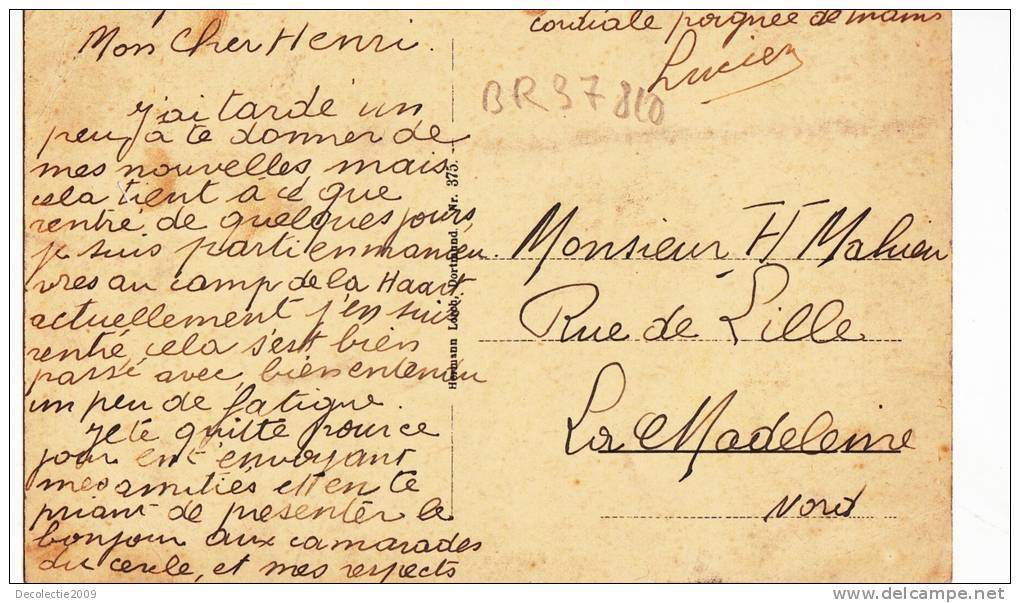 Mon Cher Henri.
J'ai tardé un
peu à te donner de
mes nouvelles, mais
cela tient à ce que
rentré de quelques jours,
je suis parti en manœu
vres au camp de la Haart
actuellement j'en suis
rentré, cela s'est bien
passé avec, bien entendu
un peu de fatigue.
Je te quitte pour ce
jour en t'envoyant
mes amitiés et en te
priant de présenter le
bonjour aux camarades
du cercle, et mes respects
cordiale poignée de mains
Lucien
BR 37 810
Hermann Lorch, Dortmund. Nr. 375.
Monsieur H Mahieu
Rue de Lille
La Madeleine
Nord
Decolectie2009
www.delcampe.net